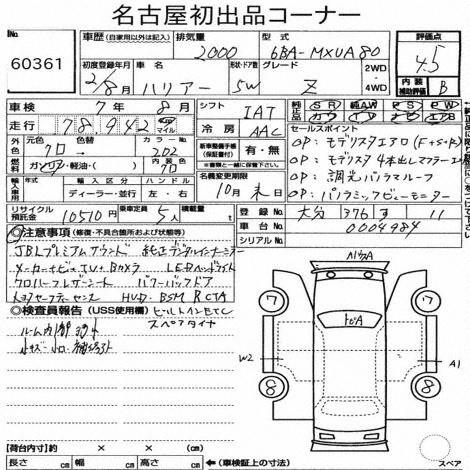 名古屋初出品コーナー
60361
車歴(自家用以外は記入) 排気量 2000 型式 6BA-MXUA80
評価点 4.5
初度登録年月 2/8月 車名 ハリアー 形状・ドア数 5W グレード Z 2WD 4WD
内装補助評価 B
車検 7年 8月 シフト IAT
純正品 SR AW PS PW
走行 78,942 km マイル 冷房 AAC
セールスポイント
外色 元色 クロ 色替 カラーNo. 202 新車整備手帳(保証書付) 有・無
OP:モデリスタエアロ(F+S+R)
燃料 ガソリン・軽油・( ) 内色 クロ ※書類と一緒に保管して下さい。
OP:モデリスタ4本出しマフラー
輸入車用 年式 輸入 ディーラー・並行 ハンドル 左・右 名義変更期限 10月末日
OP:調光パノラマルーフ
OP:パノラミックビューモニター
リサイクル預託金 10510円 乗車定員 5人 積載量 t
登録No. 大分 376 す 11
注意事項(修復・不具合箇所および状態等)
車台No. 0004984
シリアルNo.
JBLプレミアムサウンド 純正デジタルインナーミラー
メーカーナビ TV Bカメラ LEDヘッドライト
クロハーフレザーシート パワーバックドア
トヨタセーフティセンス HUD BSM RCTA
検査員報告(USS使用欄) ビルトインETC
スペアタイヤ
ルーム内
小キズ・小凹
パノラマA
7 7
トビA
W2 A1
8 8
【荷台内寸】約 × × (cm)
長さ cm 幅 cm 高さ cm ←(車検証上の寸法) スペア